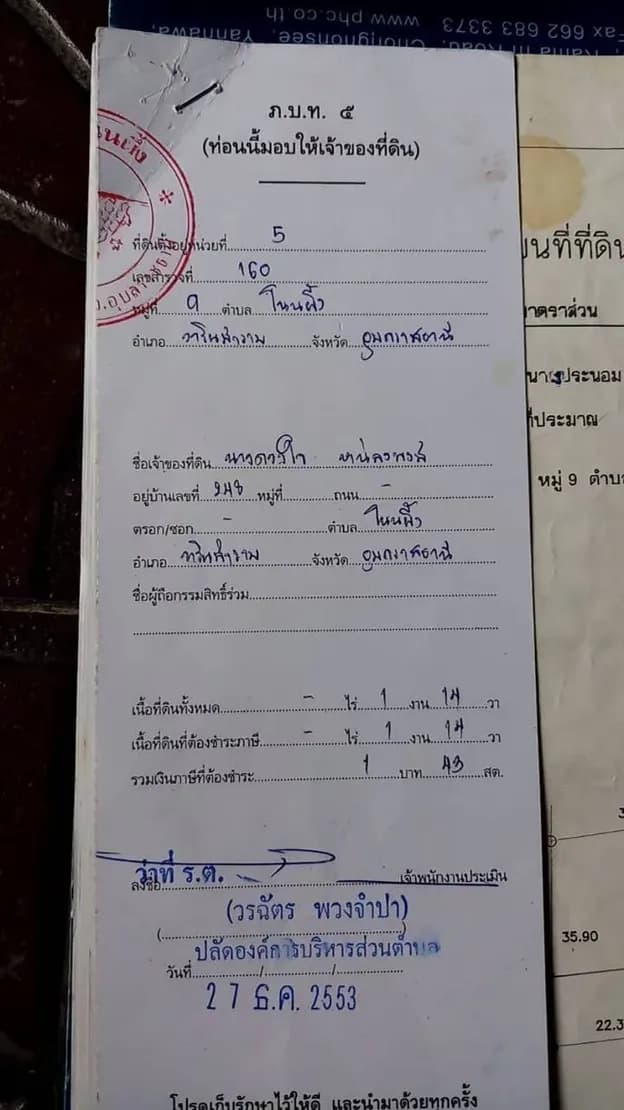 Fax 662 683 3373 www.phc.co.th
Rama III Road, Chongnonsee, Yannawa,
ภ.บ.ท. ๕
(ท่อนนี้มอบให้เจ้าของที่ดิน)
ที่ดินตั้งอยู่หน่วยที่ 5
เลขสำรวจที่ 160
หมู่ที่ 9 ตำบล โนนผึ้ง
อำเภอ วารินชำราบ จังหวัด อุบลราชธานี
ชื่อเจ้าของที่ดิน
อยู่บ้านเลขที่ 248 หมู่ที่ ถนน -
ตรอก/ซอก - ตำบล โนนผึ้ง
อำเภอ วารินชำราบ จังหวัด อุบลราชธานี
ชื่อผู้ถือกรรมสิทธิ์ร่วม
เนื้อที่ดินทั้งหมด - ไร่ 1 งาน 14 วา
เนื้อที่ดินที่ต้องชำระภาษี - ไร่ 1 งาน 14 วา
รวมเงินภาษีที่ต้องชำระ 1 บาท 43 สต.
ว่าที่ ร.ต.
ลงชื่อ เจ้าพนักงานประเมิน
(วรฉัตร พวงจำปา)
ปลัดองค์การบริหารส่วนตำบล
วันที่ / /
27 ธ.ค. 2553
โปรดเก็บรักษาไว้ให้ดี และนำมาด้วยทุกครั้ง
นที่ที่ดิน
มาตราส่วน
นางประนอม
ที่ประมาณ
หมู่ 9 ตำบล
35.90
22.3